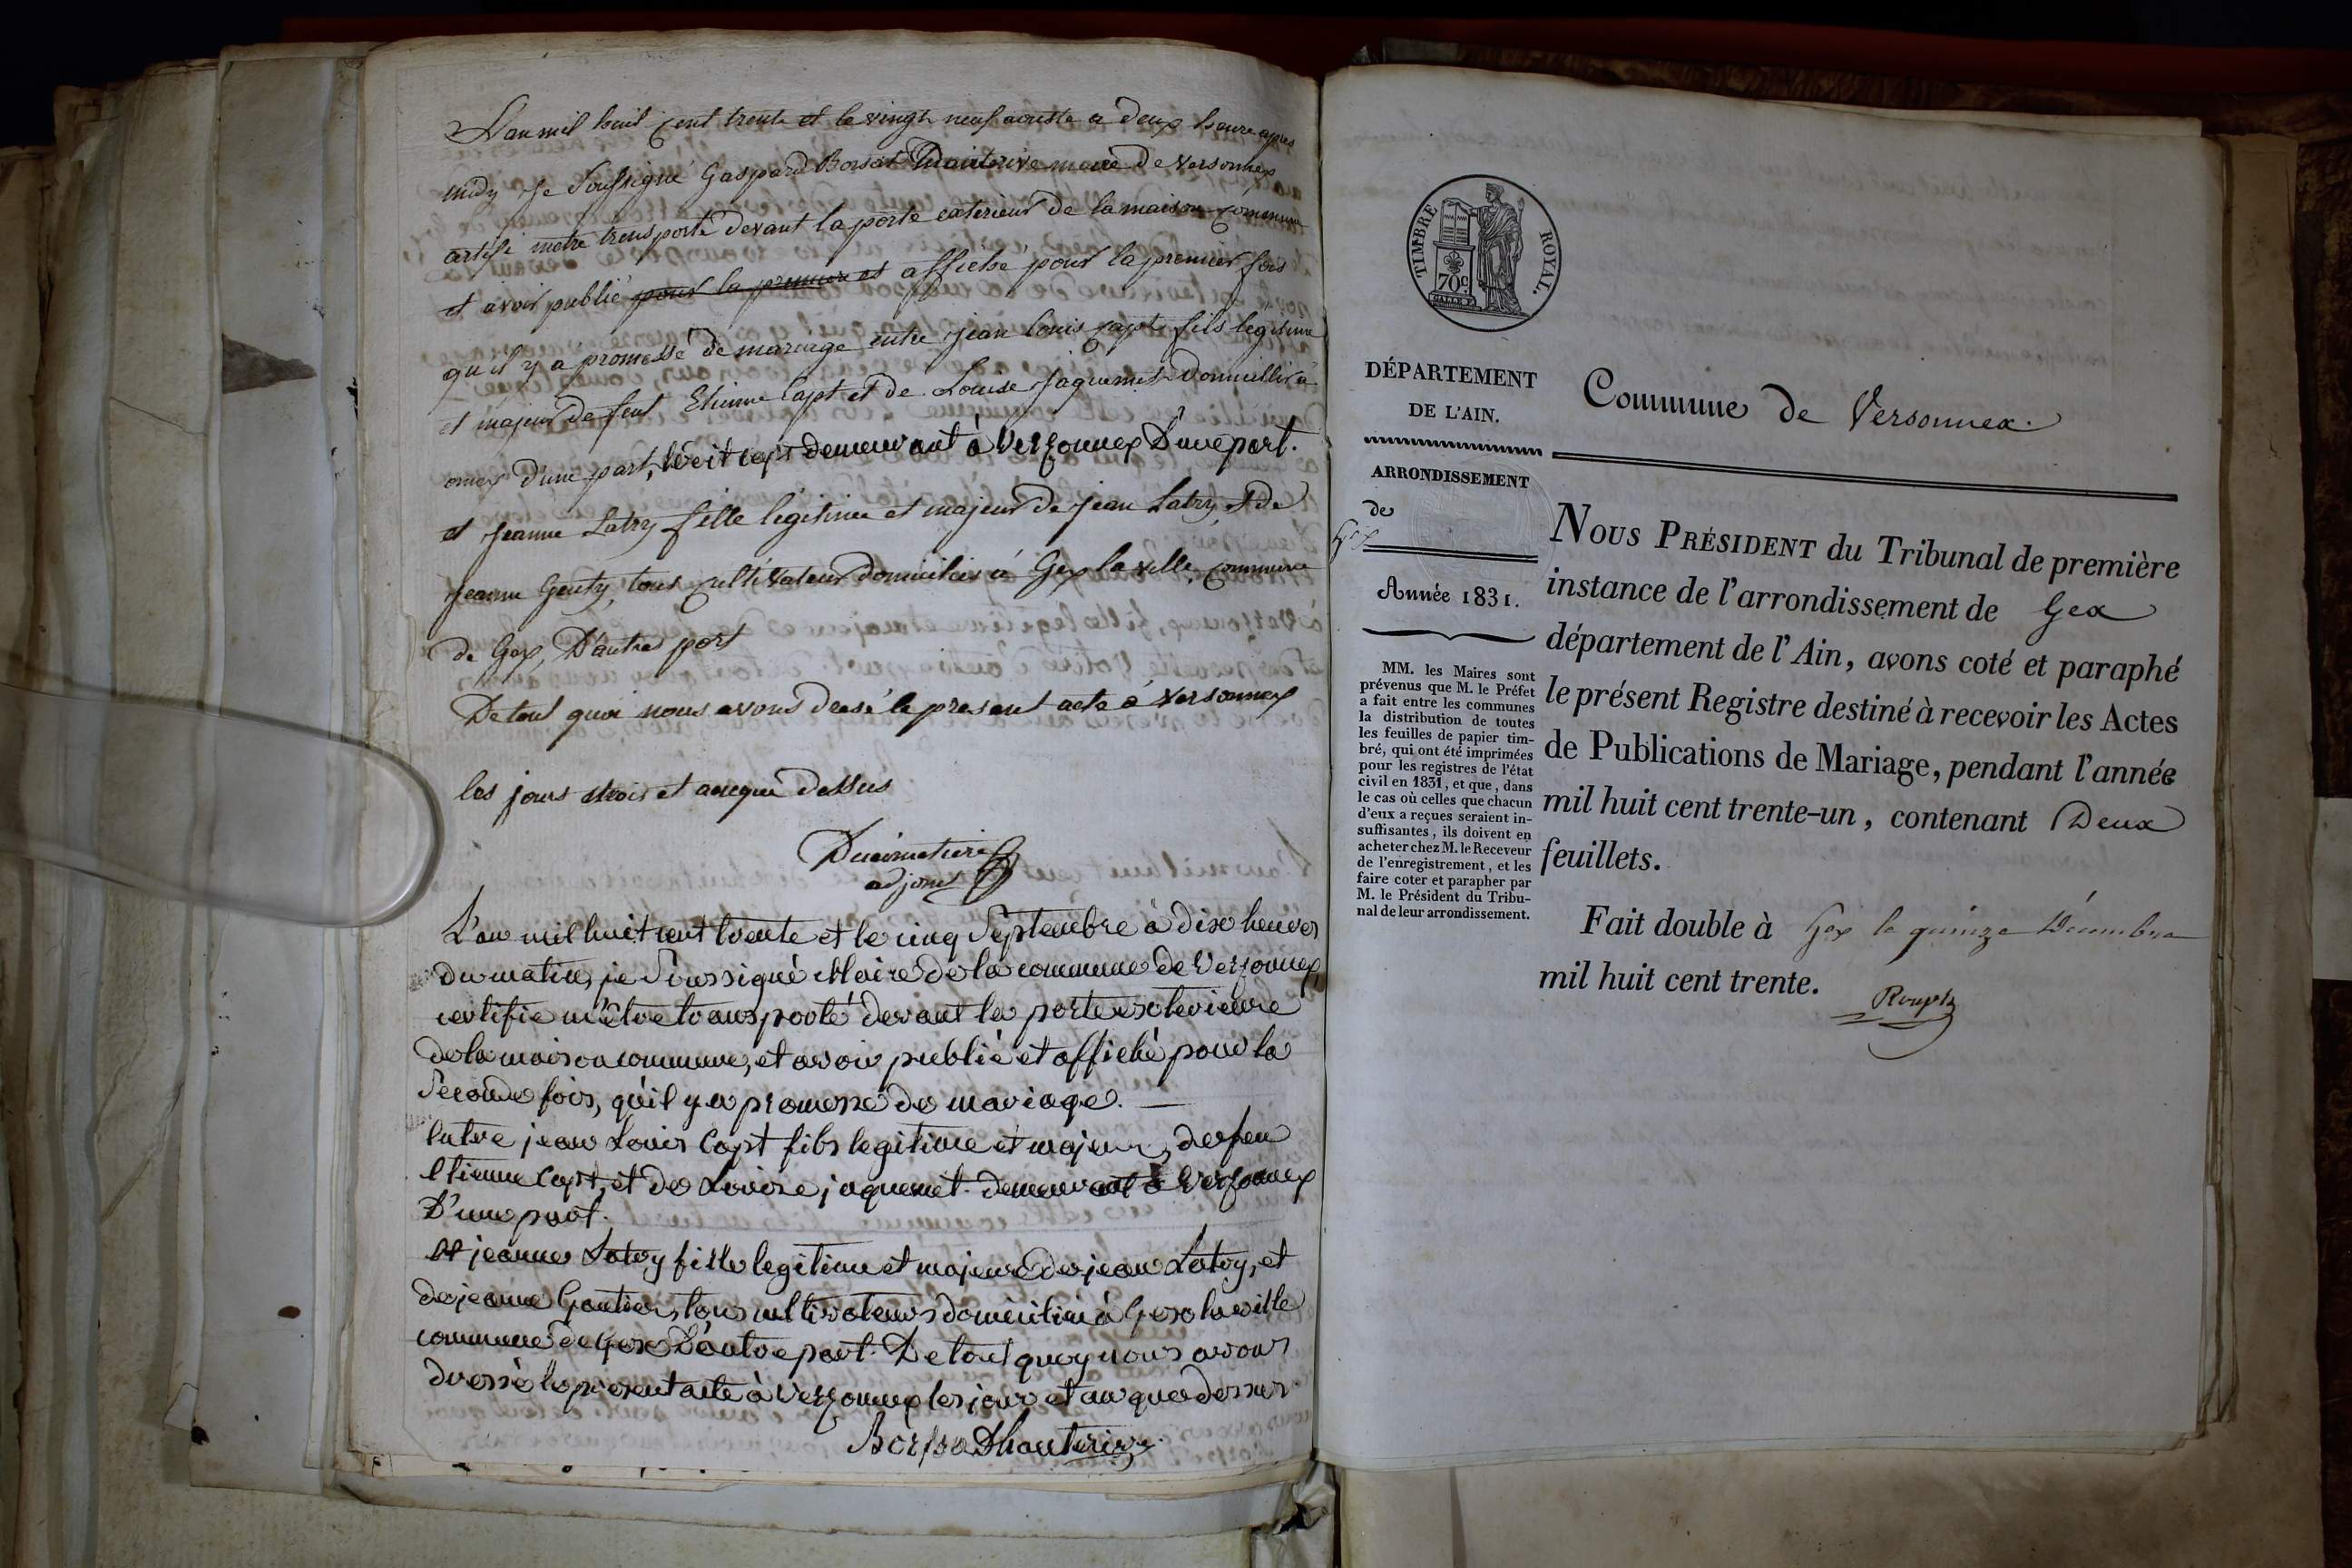 L'an mil huit cent trente et le vingt neuf aouste a deux heure apres
midy Je Soussigné Gaspard Borsat Dhauterive maire de Versonnex
certifi metre transporté devant la porte exterieur de la maison commune
et avoir publié pour la premier et affiché pour la premier fois
qu il y a promesse de mariage entre jean louis Capt fils legitime
et majeur de feut Etienne Capt et de Louise Jaquemet domicillié a
d'une part, demeurant à Versonnex D'une part.
et jeanne Latry fille legitime et majeur de jean Latry, et de
jeanne Genty, tous cultivateur domicilies à Gex la ville, commune
de Gex, D'autres part
De tout quoi nous avons dresé le present acte a Versonnex
les jours mois et an que dessus
Ducimetiere
adjoint
L'an mil huit cent trente et le cinq Septembre à dix heures
du matin, je Soussigné Maire de la commune de Versonnex,
certifie m'être transporté devant la porte exterieure
de la maison commune, et avoir publié et affiché pour la
Seconde fois, qu'il y a promesse de mariage.
Entre jean Louis Capt fils legitime et majeur, de feu
Etienne Capt, et de Louise jaquemet demeurant à Versonnex
D'une part.
Et jeanne Latry fille legitime et majeure de jean Latry, et
de jeanne Gentier, tous cultivateurs domicilié à Gex la ville
commune de Gex D'autre part. De tout quoy nous avons
dressé le présent acte à Versonnex les jour et an que dessus
Borssa Dhauterive
TIMBRE ROYAL.
70c.
DÉPARTEMENT
DE L'AIN.
Commune de Versonnex.
ARRONDISSEMENT
de
Gex
Année 1831.
MM. les Maires sont
prévenus que M. le Préfet
a fait entre les communes
la distribution de toutes
les feuilles de papier tim-
bré, qui ont été imprimées
pour les registres de l'état
civil en 1831, et que, dans
le cas où celles que chacun
d'eux a reçues seraient in-
suffisantes, ils doivent en
acheter chez M. le Receveur
de l'enregistrement, et les
faire coter et parapher par
M. le Président du Tribu-
nal de leur arrondissement.
NOUS PRÉSIDENT du Tribunal de première
instance de l'arrondissement de Gex
département de l'Ain, avons coté et paraphé
le présent Registre destiné à recevoir les Actes
de Publications de Mariage, pendant l'année
mil huit cent trente-un, contenant Deux
feuillets.
Fait double à Gex le quinze Décembre
mil huit cent trente.